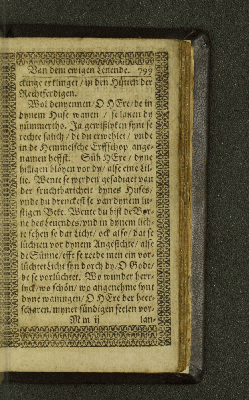 Van dem ewigen levende. 799
ckinge erklinget / in den Hütten der
Rechtferdigen.
Wol denyennen / O HEre / de in
dynem Huse wanen / se laven dy
ümmertho. Ja gewißlyken synt se
rechte salich / de du erwelet / unde
in de Hemmelsche Erffschop ange-
namen heffst. Süh HEre / dyne
hilligen blöyen vor dy / alse eine Lil-
lie. Wente se werden gesadiget van
der fruchtbaricheit dynes Huses /
unde du drenckest se van dynem lü-
stigen Beke. Wente du bist de Bor-
ne des levendes / und in dynem lich-
te sehen se dat Licht / ock alse / dat se
lüchten vor dynem Angesichte / alse
de Sünne /
lüchtet Licht syn dorch dy / O Godt
de se vorlüchtet. Wo wunder herr-
lyck / wo schön / wo angenehme synt
dyne waningen / O HEre der heer-
scharen. myner sündigen seelen vor-
M m ii
lan-